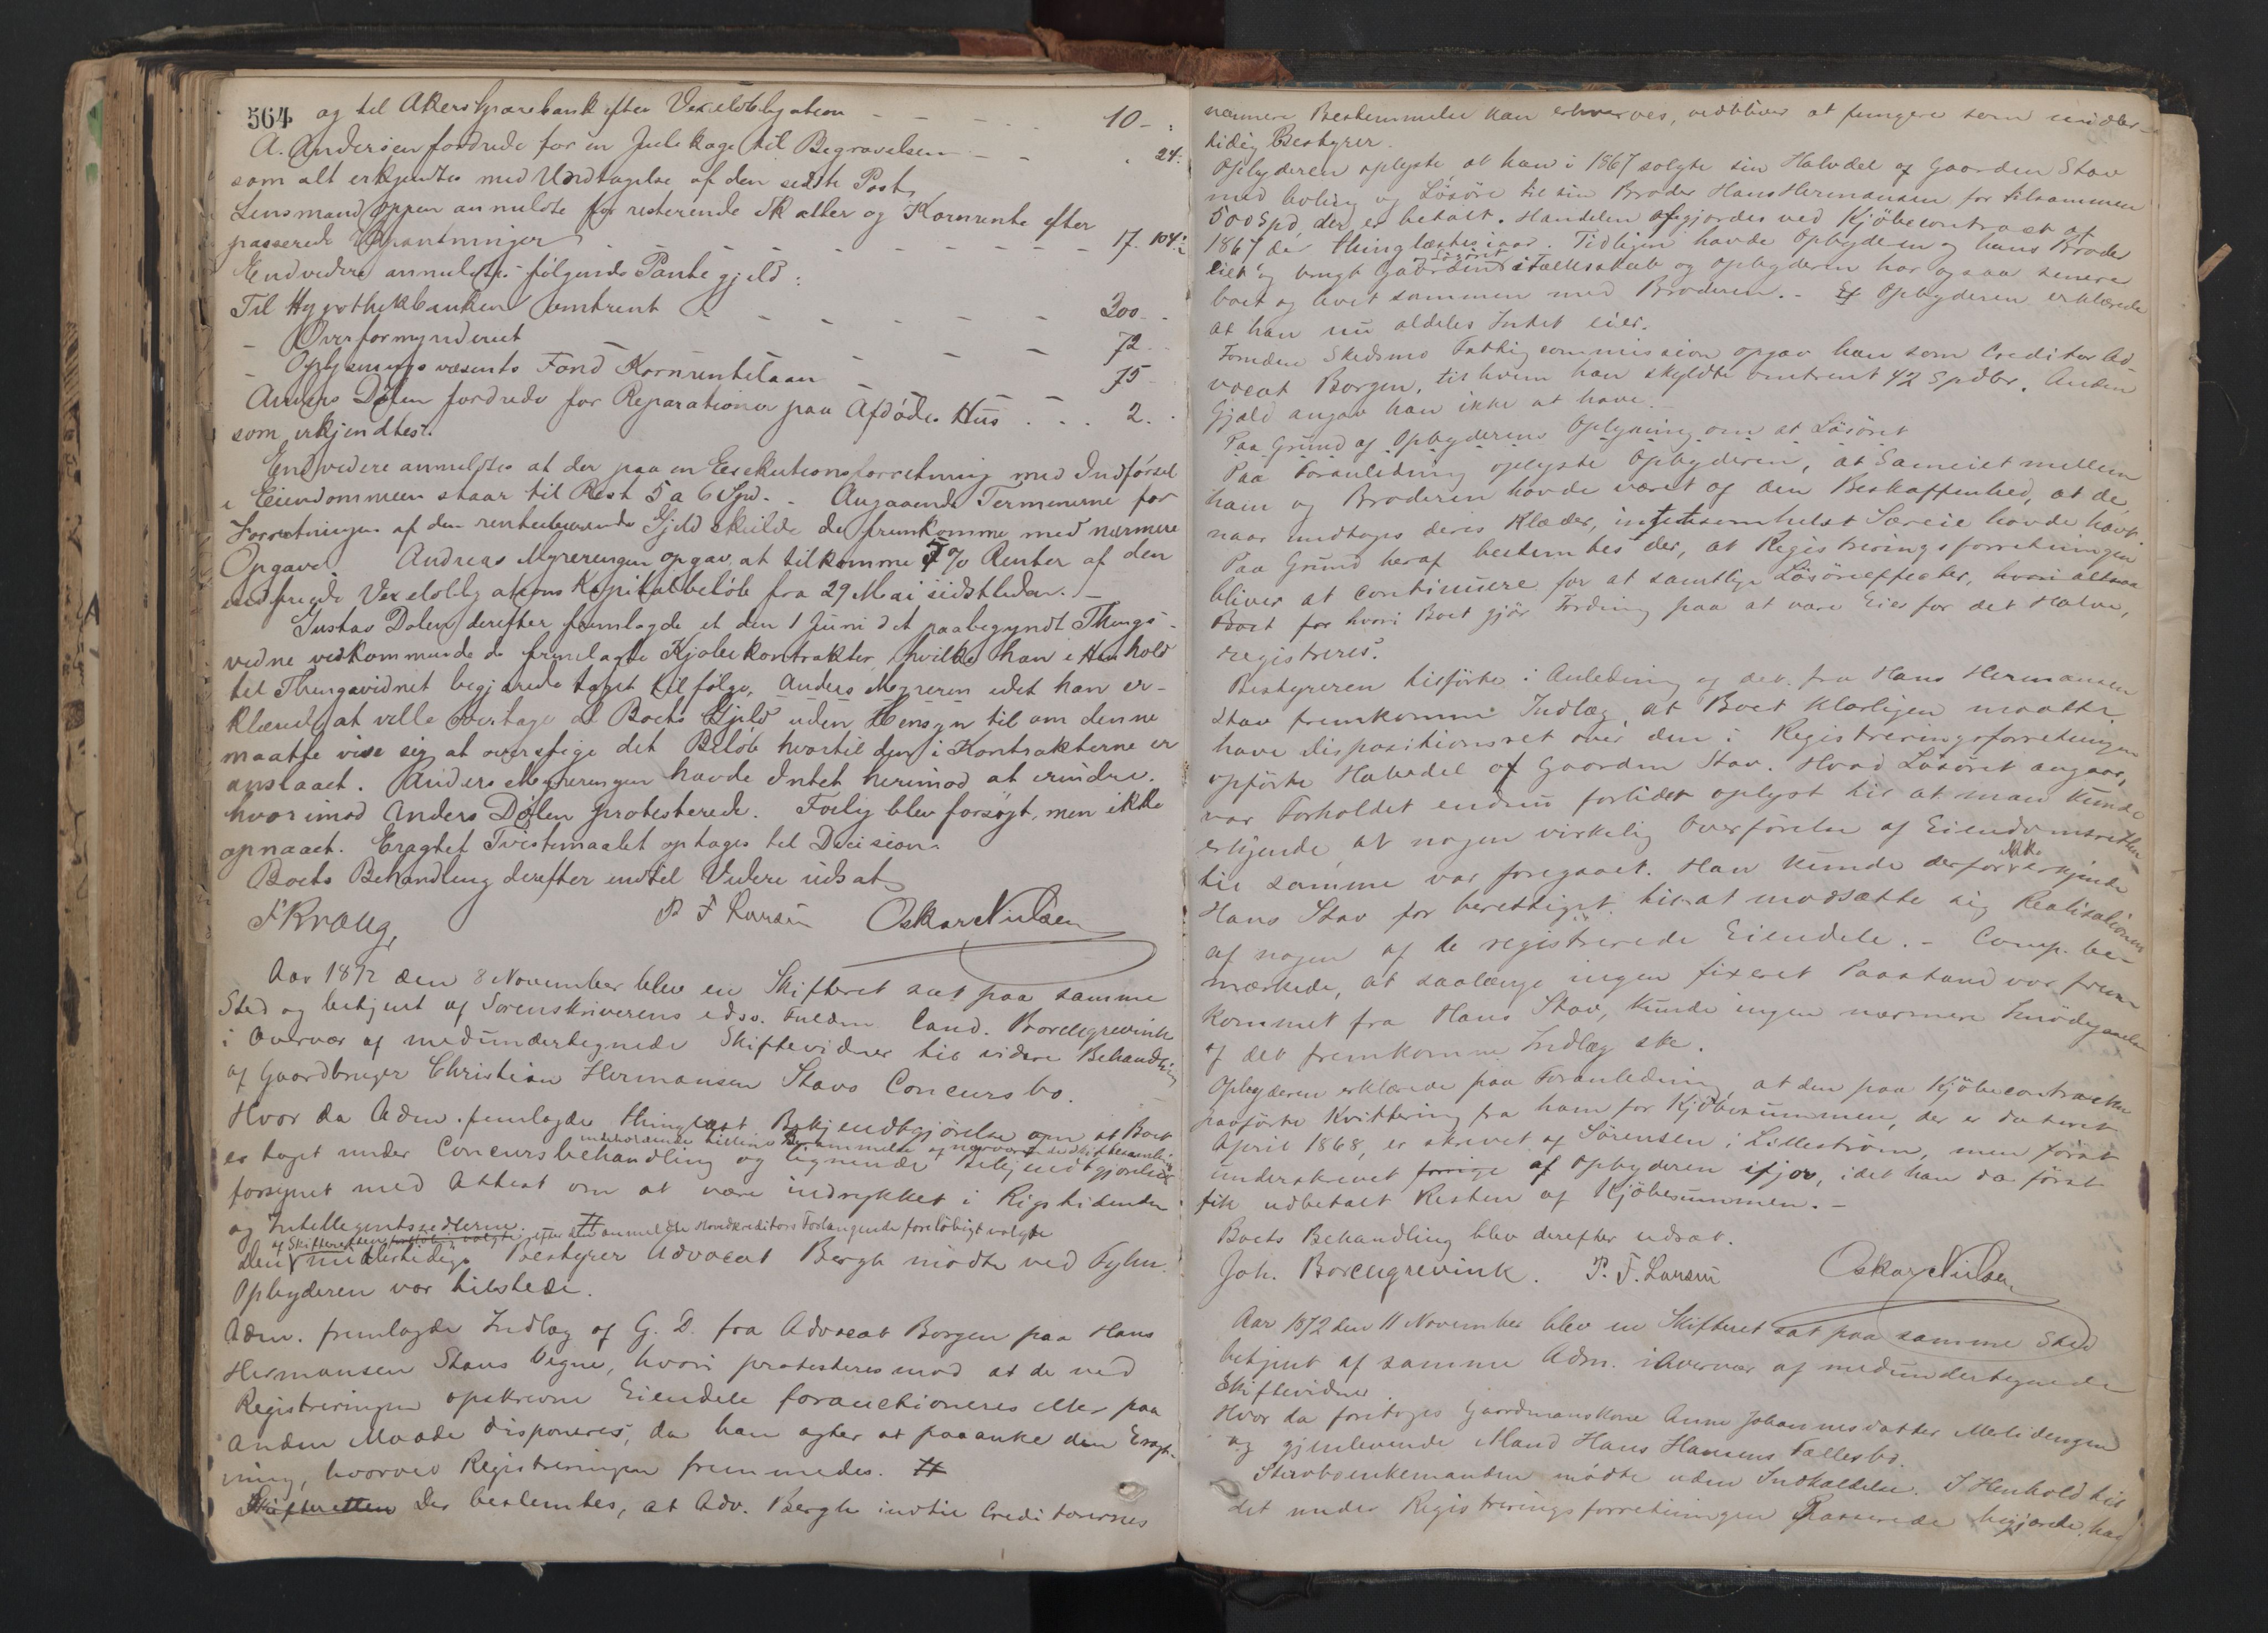 564 og til Akers Sparebank efter Vexelobligation - - - - 10 - :
A. Andersen fordrede for en Julekage til Begravelsen - - . 24:
som alt erkjendtes med Undtagelse af den sidste Post,
Lensmand Oppen anmeldte for resterende Skatter og Kornrente efter
passerede Udpantninger - - - - - - - 17. 104:
Endvidere anmeldtes følgende Pantegjeld:
Til Hypothekbanken omtrent - - - - - - 300 - -
- Overformynderiet - - - - 72 - -
- Oplysningsvæsents Fond Kornrentelaan - - - 75 -
Anders Dølen fordrede for Reparationer paa Afdødes Hus . . . 2. .
som erkjendtes.
Endvidere anmeldtes at der paa en Exekutionsforretning med Indførsel
i Eiendommen staar til Rest 5 a 6 Spd. - Angaaende Terminerne for
Forretningen af den rentebærende Gjeld skulde de fremkomme med nærmere
Opgave. Andreas Myrerengen opgav at tilkomme 5 % Renter af den
Vexelobligations Kapitalbeløb fra 29 Mai sidstleden. -
Gustav Dølen derefter fremlagde et den 1 Juni d.A. paabegyndt Things-
vidne vedkommende de fremlagte Kjøbekontrakter, hvilke han i Henhold
til Thingsvidnet begjærede taget tilfølge, Anders Myreren idet han er-
klærede at ville overtage al Boets Gjeld uden Hensyn til om denne
maatte vise sig at overstige det Beløb hvortil den i Kontrakterne er
anslaaet. Anders Myrerengen havde Intet herimod at erindre.
hvorimod Anders Dølen protesterede. Forlig blev forsøgt, men ikke
opnaaet. Eragtet Tvistemaalet optages til Decision.
Boets Behandling derefter indtil Videre udsat.
F Knaug, P. F. Larsen Oskar Nielsen
Aar 1872 den 8 November blev en Skifteret sat paa samme
Sted og betjent af Sorenskriverens edsv. Fuldm. Cand. Borchgrevink
i Overvær af medundertegnede Skiftevidner til videre Behandling
af Gaardbruger Christian Hermansen Stavs Concursbo.
Hvor da Adm. fremlagde thinglæst Bekjendtgjørelse om at Boet
indeholdende tillige Berammelse af nærværende Skiftesamling
er taget under Concursbehandling og lignende Bekjendtgjørelse
forsynet med Attest om at være indrykket i Rigstidende
og Intelligentssedlerne. #
af Skifteretten foreløbig valgte efter den anmeldte Hovedkreditors Forlangende foreløbigt valgte
Den midlertidige Bestyrer Advocat Bergh mødte ved Fylm.
Opbyderen var tilstede.
Adm. fremlagde Indlæg af G. D. fra Advocat Borgen paa Hans
Hermansen Stavs Vegne, hvori protesteres mod at de ved
Registreringen opskrevne Eiendele forauctioneres eller paa
anden Maade disponeres, da han agter at paaanke den Eragt-
ning, hvorved Registreringen fremmedes. #
Skifteretten Der bestemtes, at Adv. Bergh indtil Creditorernes
nærmere Bestemmelse kan erhverves, vedbliver at fungere som midler-
tidig Bestyrer.
Opbyderen oplyste, at han i 1867 solgte sin Halvdel af Gaarden Stav
med bolig og Løsøre til sin Broder Hans Hermansen for tilsammen
500 Spd, der er betalt. Handelen afgjordes ved Kjøbecontract af
1867 der thinglæstes iaar. Tidligere havde Opbyderen og hans Broder
og Løsøret
eiet og brugt Gaarden i Fællesskab og Opbyderen har ogsaa senere
boet og levet sammen med Broderen. - Opbyderen erklærede
at han nu aldeles Intet eier.
Foruden Skedsmo Fattigcommission opgav han som Creditor Ad-
vocat Borgen, til hvem han skyldte omtrent 42 Spdlr. Anden
Gjæld angav han ikke at have. -
Paa Grund af Opbyderens Oplysning om at Løsøret
Paa Foranledning oplyste Opbyderen, at Sameiet mellem
ham og Broderen havde været af den Beskaffenhed, at de,
naar undtages deres Klæder, intetsomhelst Særeie havde havt.
Paa Grund heraf bestemtes der, at Registreringsforretningen
bliver at continuere for at samtlige Løsøreeffecter, hvori altsaa
Boet for hvori Boet gjør Fordring paa at være Eier for det Halve,
registreres.
Bestyreren tilførte i Anledning af det fra Hans Hermansen
Stav fremkomne Indlæg, at Boet klarligen maatte
have Dispositionsret over den i Registreringsforretningen
opførte Halvdel af Gaarden Stav. Hvad Løsøret angaar,
var Forholdet endnu forlidet oplyst til at man kunde
erkjende, at nogen virkelig Overførelse af Eiendomsretten
ikke
til samme var foregaaet. Han kunde derfor erkjende
Hans Stav for berettiget til at modsætte sig Realisationen
af nogen af de registrerede Eiendele. - Comp. be-
mærkede, at saalænge ingen fixeret Paastand var frem-
kommet fra Hans Stav, kunde ingen nærmere Imødegaaelse
af det fremkomne Indlæg ske.
Opbyderen erklærede paa Foranledning, at den paa Kjøbecontracten
paaførte Kvittering fra ham for Kjøbesummen, der er dateret
April 1868, er skrevet af Sørensen i Lillestrøm, men først
underskrevet forrige af Opbyderen ifjor, idet han da først
fik udbetalt Resten af Kjøbesummen. -
Boets Behandling blev derefter udsat.
Joh. Borchgrevink. P. F. Larsen Oskar Nielsen
Aar 1872 den 11 November blev en Skifteret sat paa samme Sted
betjent af samme Adm. i Overvær af medundertegnede
Skiftevidner.
Hvor da foretoges Gaardmandskone Anne Johannesdatter Merlidengen
og gjenlevende Mand Hans Hansens Fællesbo.
Stervboenkemanden mødte uden Indkaldelse. I Henhold til
det under Registreringsforretningen Passerede begjærede han